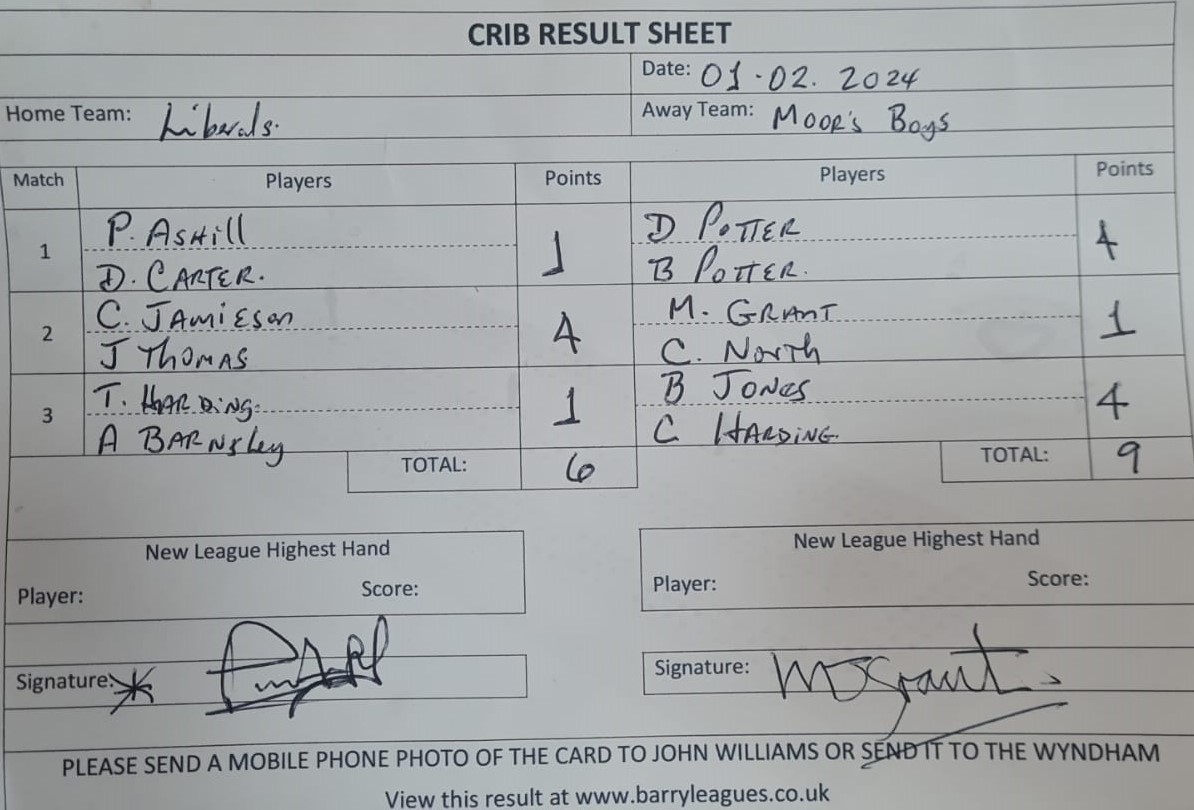 CRIB RESULT SHEET
Date: 01.02.2024
Home Team: Liberals.
Away Team: Moor's Boys
Match Players Points Players Points
1
P. ASHill
D. CARTER.
1
D POTTER
B POTTER.
4
2
C. JAMiESon
J THOMAS
4
M. GRANT
C. North
1
3
T. HARDiNG.
A BARNsley
1
B JONes
C HARDING.
4
TOTAL: 6
TOTAL: 9
New League Highest Hand
Player: Score:
New League Highest Hand
Player: Score:
Signature:
Signature: M Grant
PLEASE SEND A MOBILE PHONE PHOTO OF THE CARD TO JOHN WILLIAMS OR SEND IT TO THE WYNDHAM
View this result at www.barryleagues.co.uk